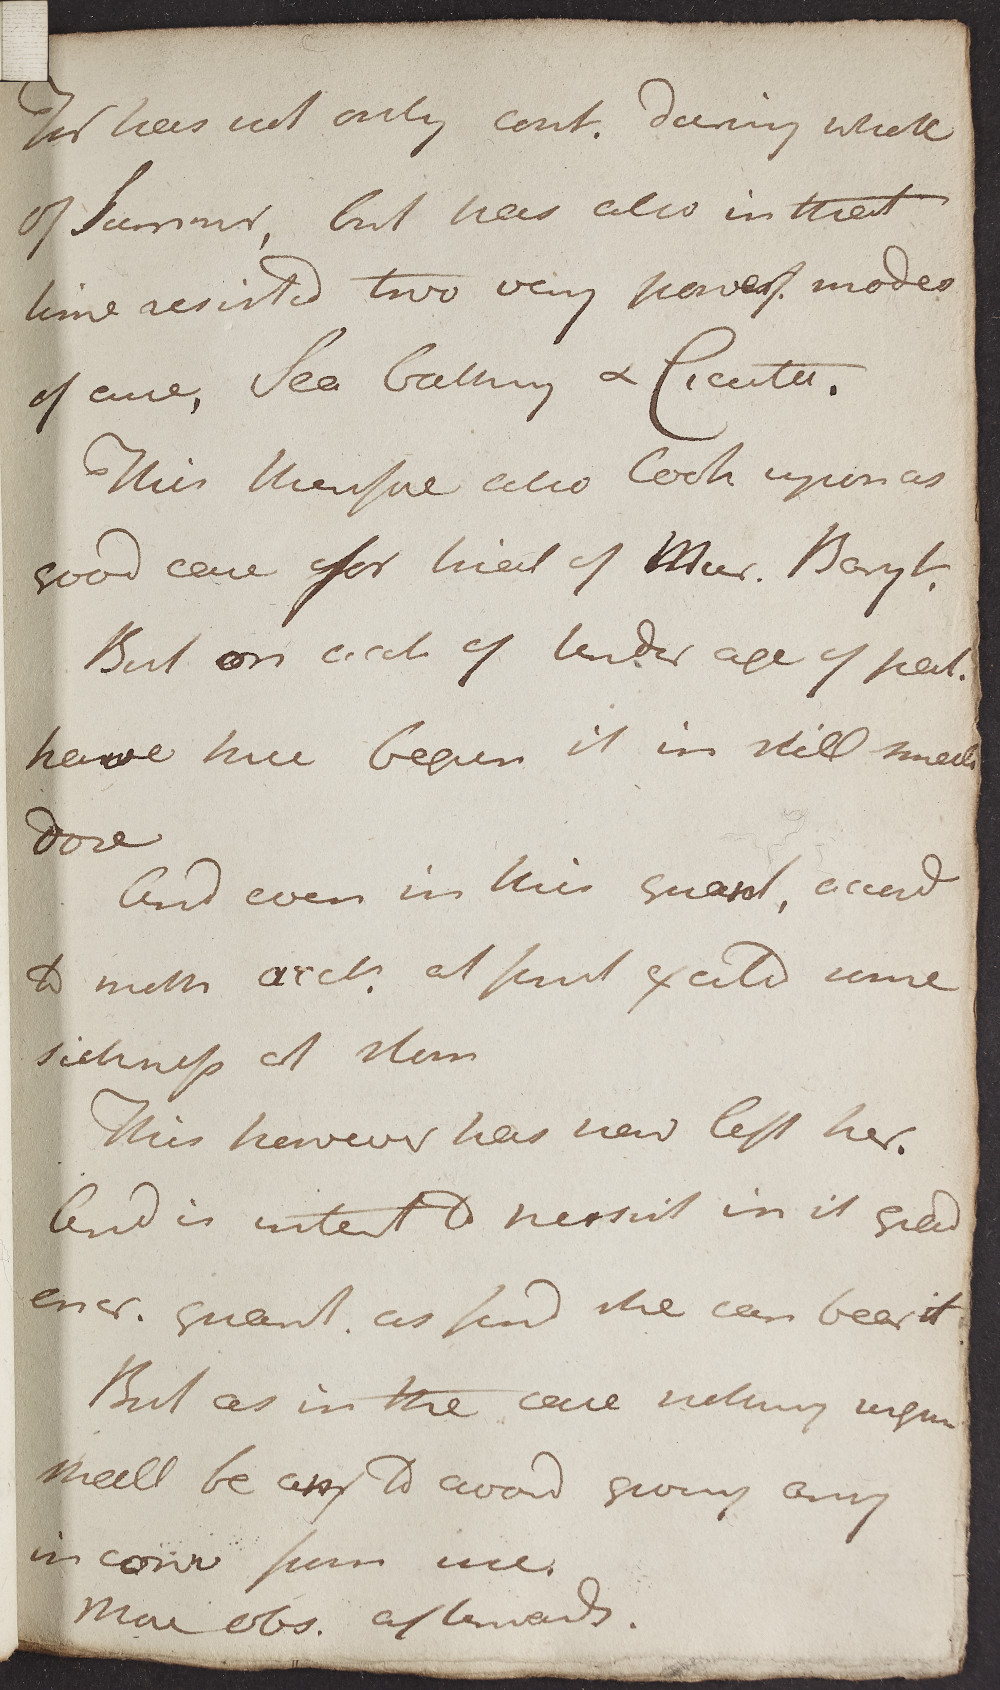 For has not only cont. during whole
of Summr, but has also in that
time resisted two very powerf. modes
of cure, Sea bathing & Cicuta.
This therefore also look upon as
good case for trial of Mur. Baryt.
But on acct of tender age of pat.
have here begun it in still smaller
dose
And even in this quant, accord
to moth acct. at first excited some
sickness at stom
This however has now left her.
And is intent to persist in it grad
encr. quant. as find she can bear it
But as in the case nothing urgen
shall be anx to avoid giving any
inconv from use.
More obs. afterwards.